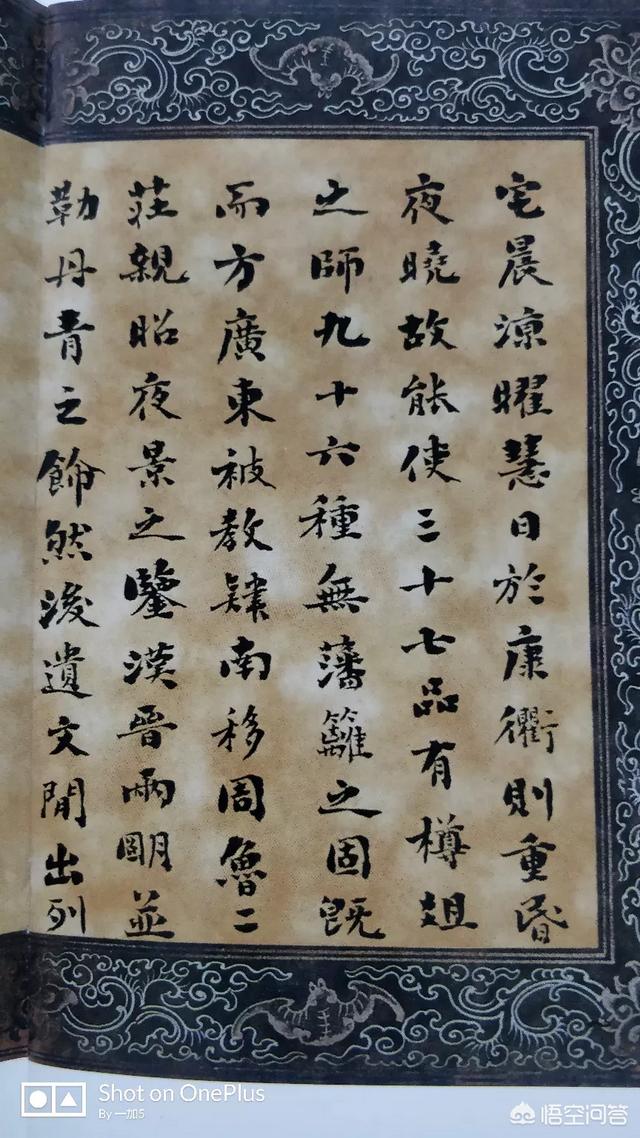 宅晨涼曜慧日於康衢則重昬
夜曉故能使三十七品有樽俎
之師九十六種無藩籬之固既
而方廣東被教肄南移周魯二
莊親昭夜景之鑒漢晉兩明並
勒丹青之飾然後遺文閒出列
Shot on OnePlus
By 一加5
悟空问答